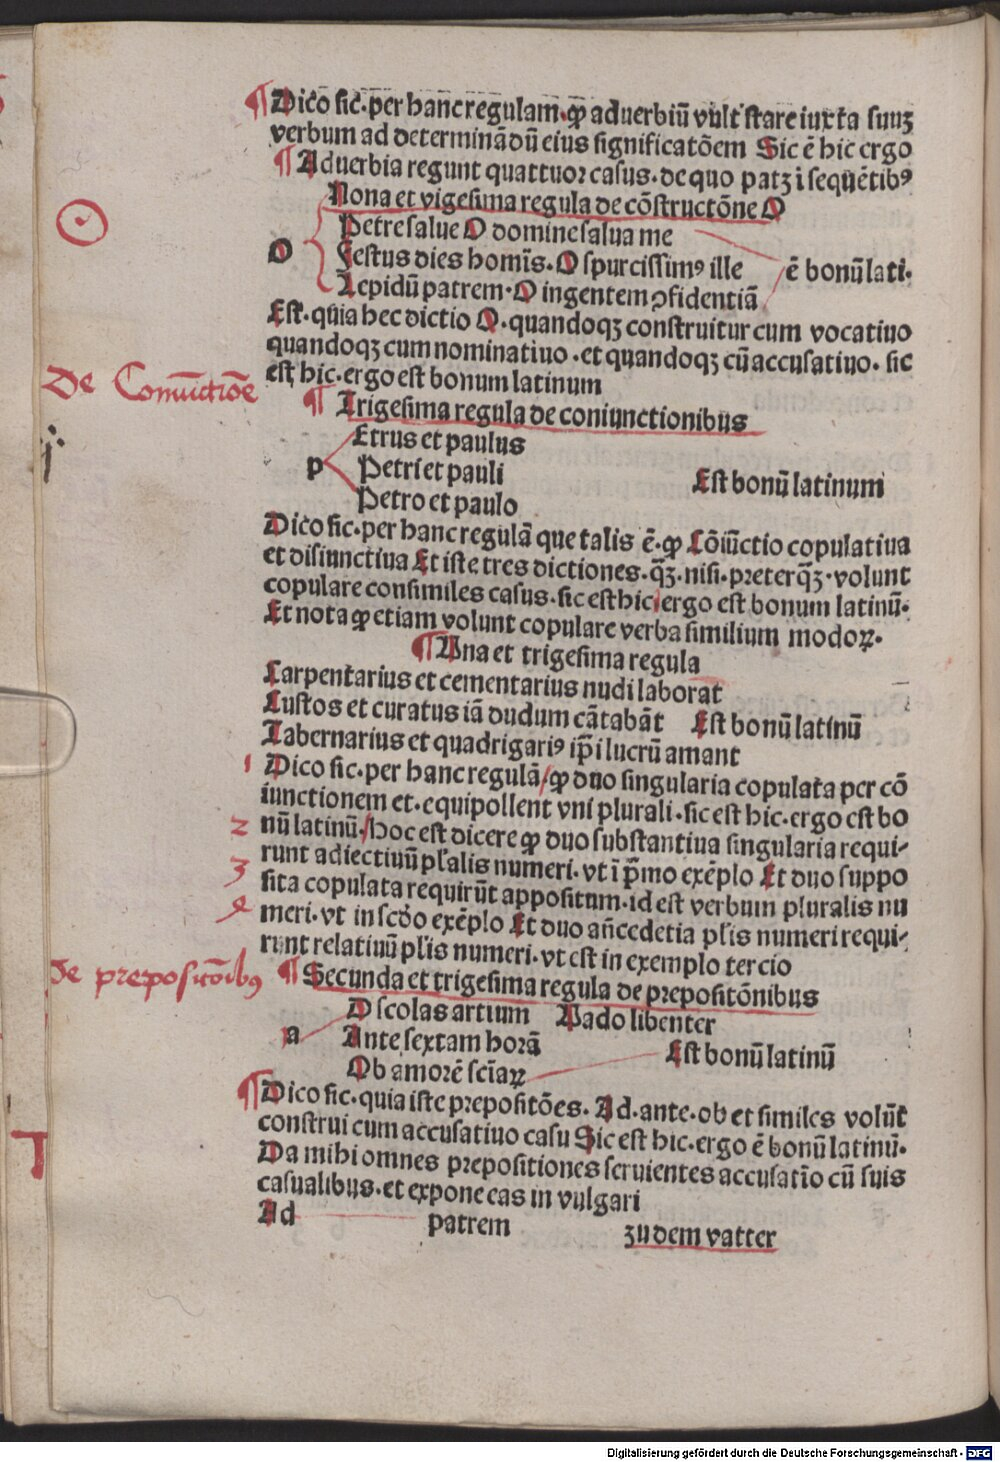 ¶ Dico sic. per hanc regulam. ꝙ aduerbiū vult stare iuxta suuꝫ
verbum ad determinādū eius significatōem Sic ē hic ergo
¶ Aduerbia regunt quattuor casus. de quo patꝫ ī sequētibꝰ
Nona et vigesima regula de cōstructōne O
Petre salue O domine salua me
O Festus dies homīs. O spurcissimꝰ ille ē bonū lati.
Lepidū patrem. O ingentem ꝯfidentiā
Est. quia hec dictio O. quandoqꝫ construitur cum vocatiuo
quandoqꝫ cum nominatiuo. et quandoqꝫ cū accusatiuo. sic
est hic. ergo est bonum latinum
De Coniūctiōe
¶ Trigesima regula de coniunctionibus
Etrus et paulus
p Petri et pauli Est bonū latinum
Petro et paulo
Dico sic. per hanc regulā que talis ē. ꝙ Cōiūctio copulatiua
et disiunctiua Et iste tres dictiones. qꝫ̄. nisi. preterqꝫ̄. volunt
copulare consimiles casus. sic est hic/ ergo est bonum latinū.
Et nota ꝙ etiam volunt copulare verba similium modoꝝ.
¶ Una et trigesima regula
Carpentarius et cementarius nudi laborat
Custos et curatus iā dudum cātabāt Est bonū latinū
Tabernarius et quadrigariꝰ ip̄i lucrū amant
1 Dico sic. per hanc regulā/ ꝙ duo singularia copulata per cō
iunctionem et. equipollent vni plurali. sic est hic. ergo est bo
2 nū latinū./ hoc est dicere ꝙ duo substantiua singularia requi-
3 runt adiectiuū pl̄alis numeri. vt ī p̄mo exēplo Et duo suppo
sita copulata requirūt appositum. id est verbum pluralis nu
meri. vt in scd̄o exēplo Et duo an̄cedētia pl̄is numeri requi-
runt relatiuū pl̄is numeri. vt est in exemplo tercio
De prepositōibꝰ
¶ Secunda et trigesima regula de prepositōnibus
D scolas artium Uado libenter
a Ante sextam horā Est bonū latinū
Ob amorē scīaꝝ
¶ Dico sic. quia iste prepositōes. Ad. ante. ob et similes volūt
construi cum accusatiuo casu Sic est hic. ergo ē bonū latinū.
Da mihi omnes prepositiones seruientes accusatīo cū suis
casualibus. et expone eas in vulgari
Ad patrem zu dem vatter
Digitalisierung gefördert durch die Deutsche Forschungsgemeinschaft - DFG